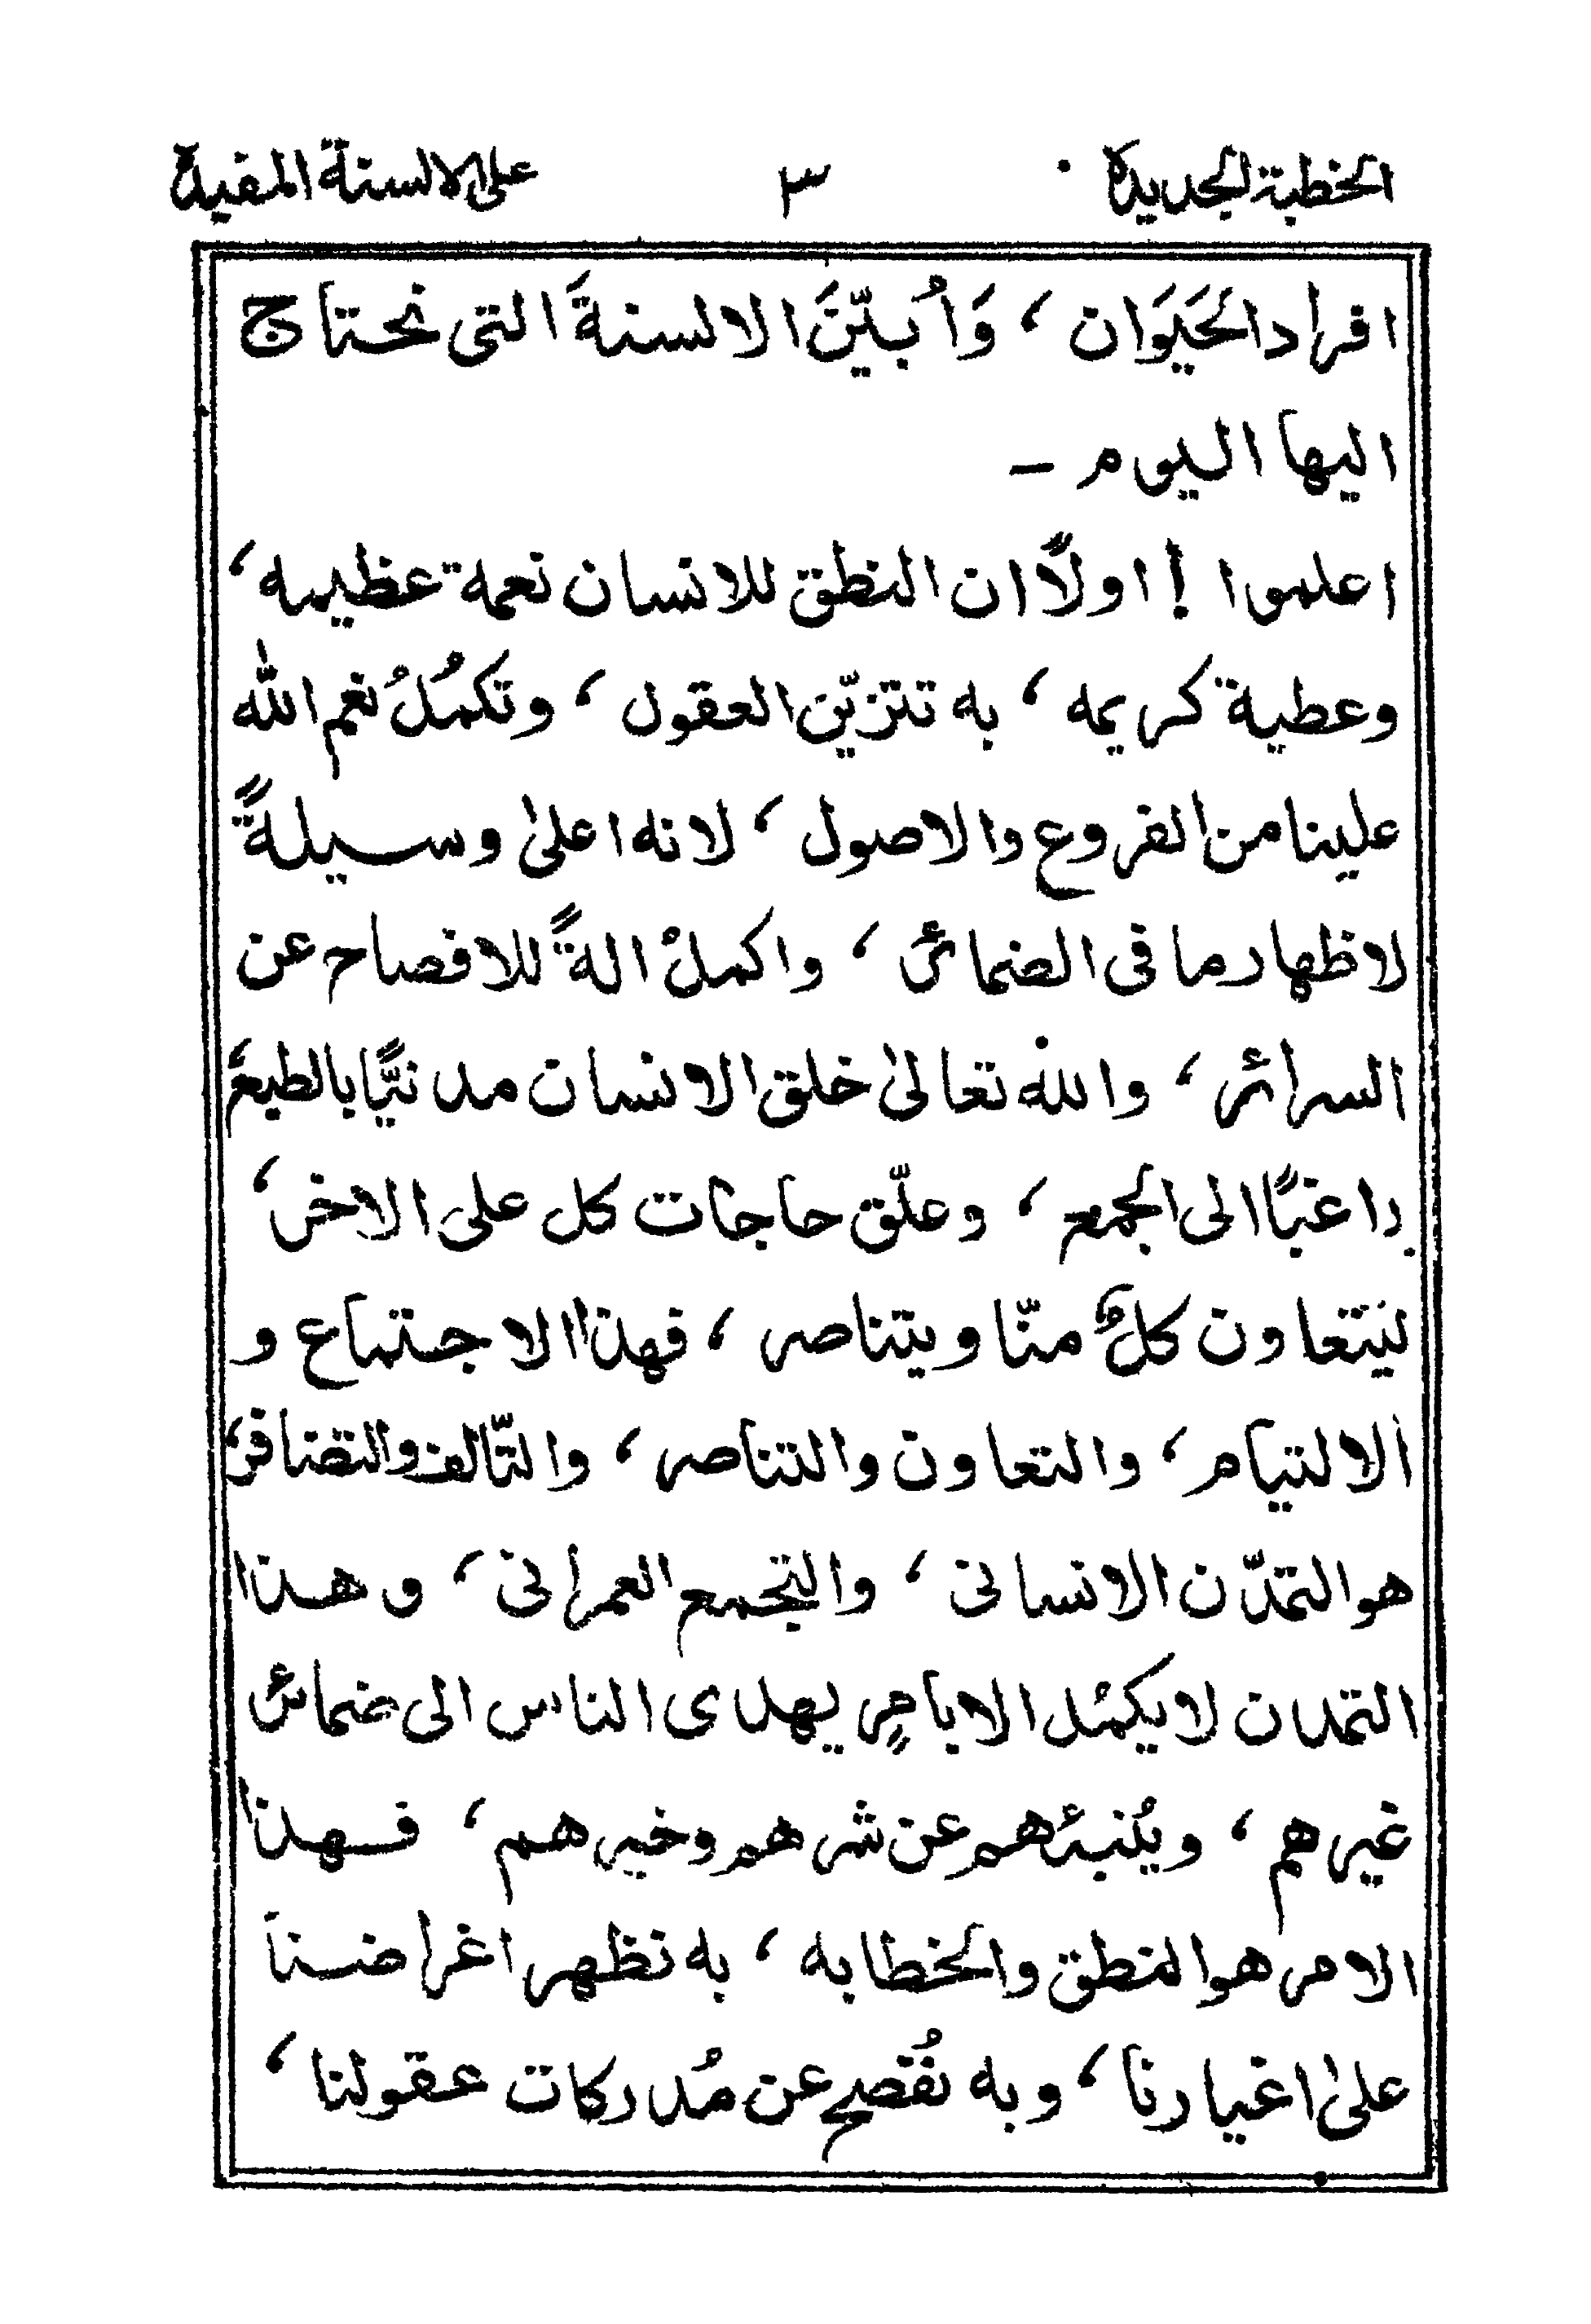 الخطبة الجديدة ٣ على الالسنة المفيدة
افراد الحَيَوَان ، وَاُبيّنَ الالسنةَ التى نحتاج
اليها اليوم ـ
اعلموا ! اولاً ان النطق للانسان نعمة عظيمه ،
وعطية كريمه ، به تتزيّن العقول ، وتكمُلُ نعم الله
علينا من الفروع والاصول ، لانه اعلىٰ وسيلةً
لاظهار ما فى الضمائر ، واكملُ الةً للافصاح عن
السرائر ، والله تعالىٰ خلق الانسان مدنيًّا بالطبع ،
راغبًا الى الجمع ، وعلّق حاجات كل على الاخر ،
ليَتعاون كلٌّ منّا ويتناصر ، فهذا الاجتماع و
الالتيام ، والتعاون والتناصر ، والتّالف والتضافر ،
هو التمدّن الانسانى ، والتجمع العمرانى ، وهذا
التمدن لا يكمُل الا بامرٍ يهدى الناس الى ضمائر
غيرهم ، ويُنبئهم عن شرهم وخيرهم ، فهذا
الامر هو النطق والخطابه ، به نظهر اغراضنا
علىٰ اغيارنا ، وبه نُفصح عن مُدركات عقولنا ،